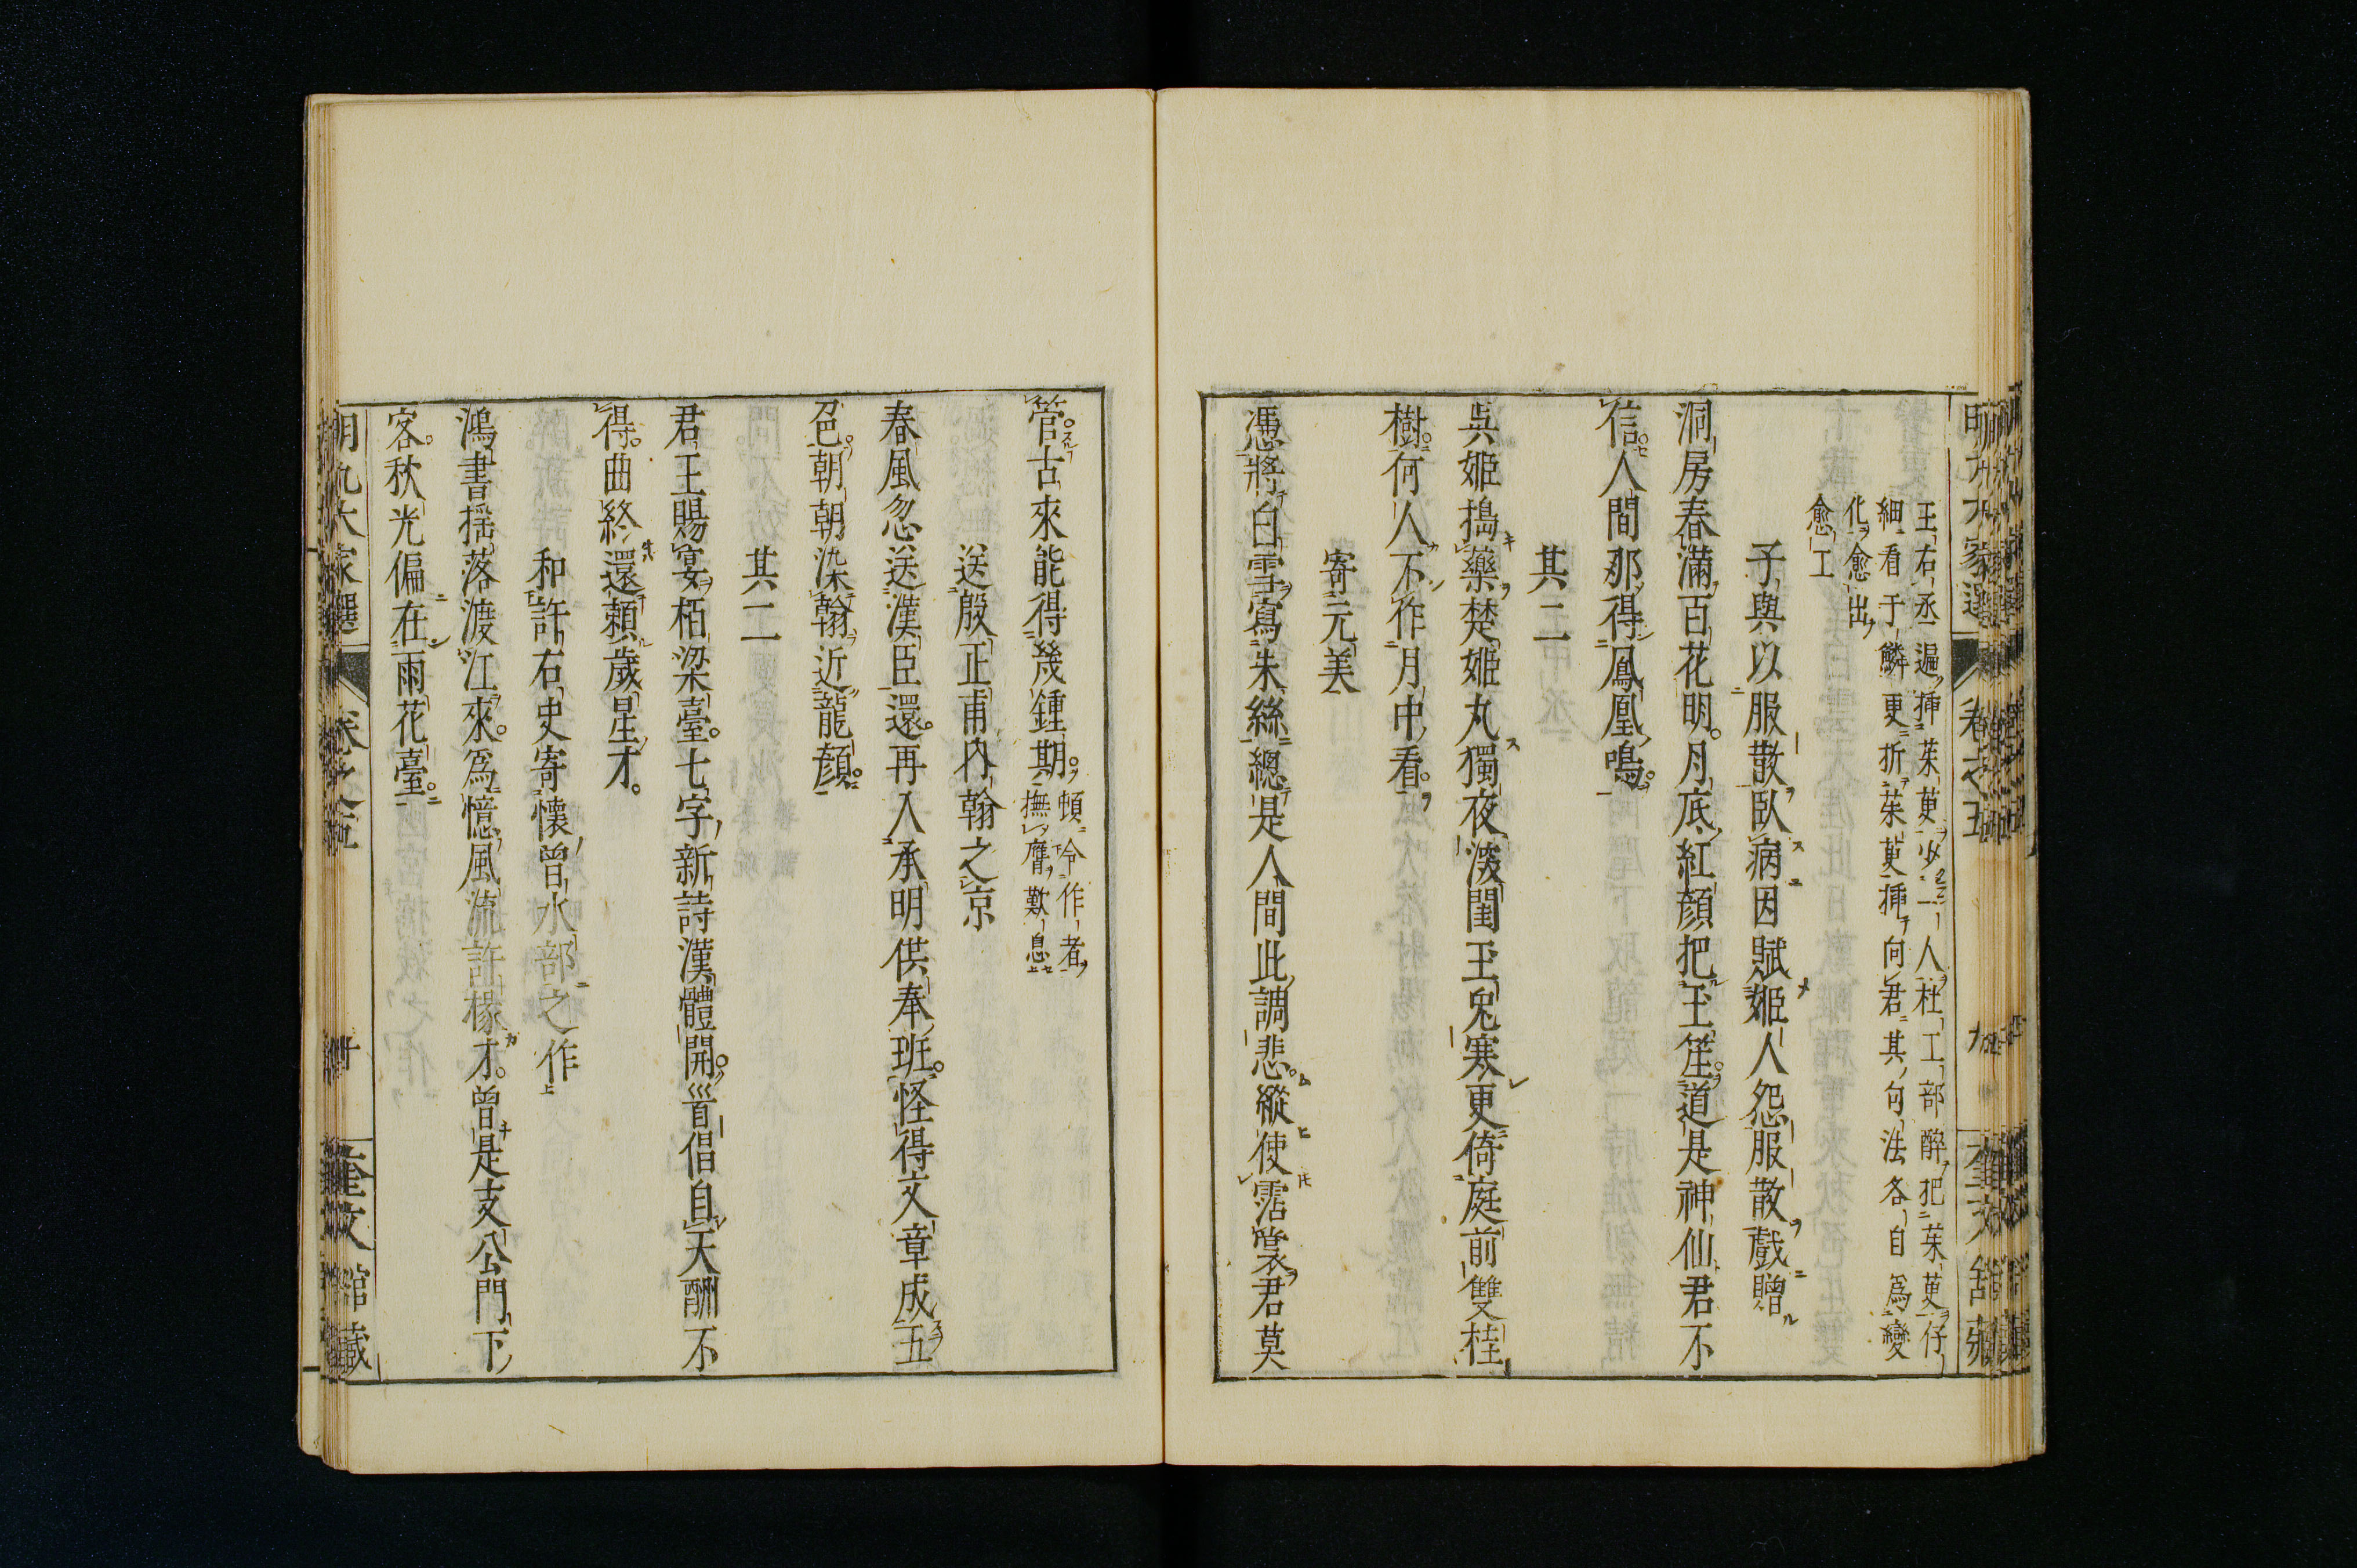 王右丞遍插茱萸少一人杜工部醉把茱萸仔
細看于鱗更折茱萸插向君其句法各自為變
化愈出
愈工
子與以服散臥病因賦姬人怨服散戲贈
洞房春滿百花明。月底紅顏把玉笙。道是神仙君不
信。人間那得鳳凰鳴。
其二
吳姬搗藥楚姬丸獨夜深閨玉兔寒更倚庭前雙桂
樹。何人不作月中看。
寄元美
憑將白雪寫朱絲總是人間此調悲。縱使霑裳君莫
管。古來能得幾鍾期。頓令作者
撫膺歎息
送殷正甫內翰之京
春風忽送漢臣還。再入承明供奉班。怪得文章成五
色。朝朝染翰近龍顏。
其二
君王賜宴栢梁臺。七字新詩漢體開。首倡自天酬不
得。曲終還賴歲星才。
和許右史寄懷曾水部之作
鴻書搖落渡江來。為憶風流許椽才。曾是支公門下
客。秋光偏在雨花臺。
明九大家選 卷之五 十 奎文館藏